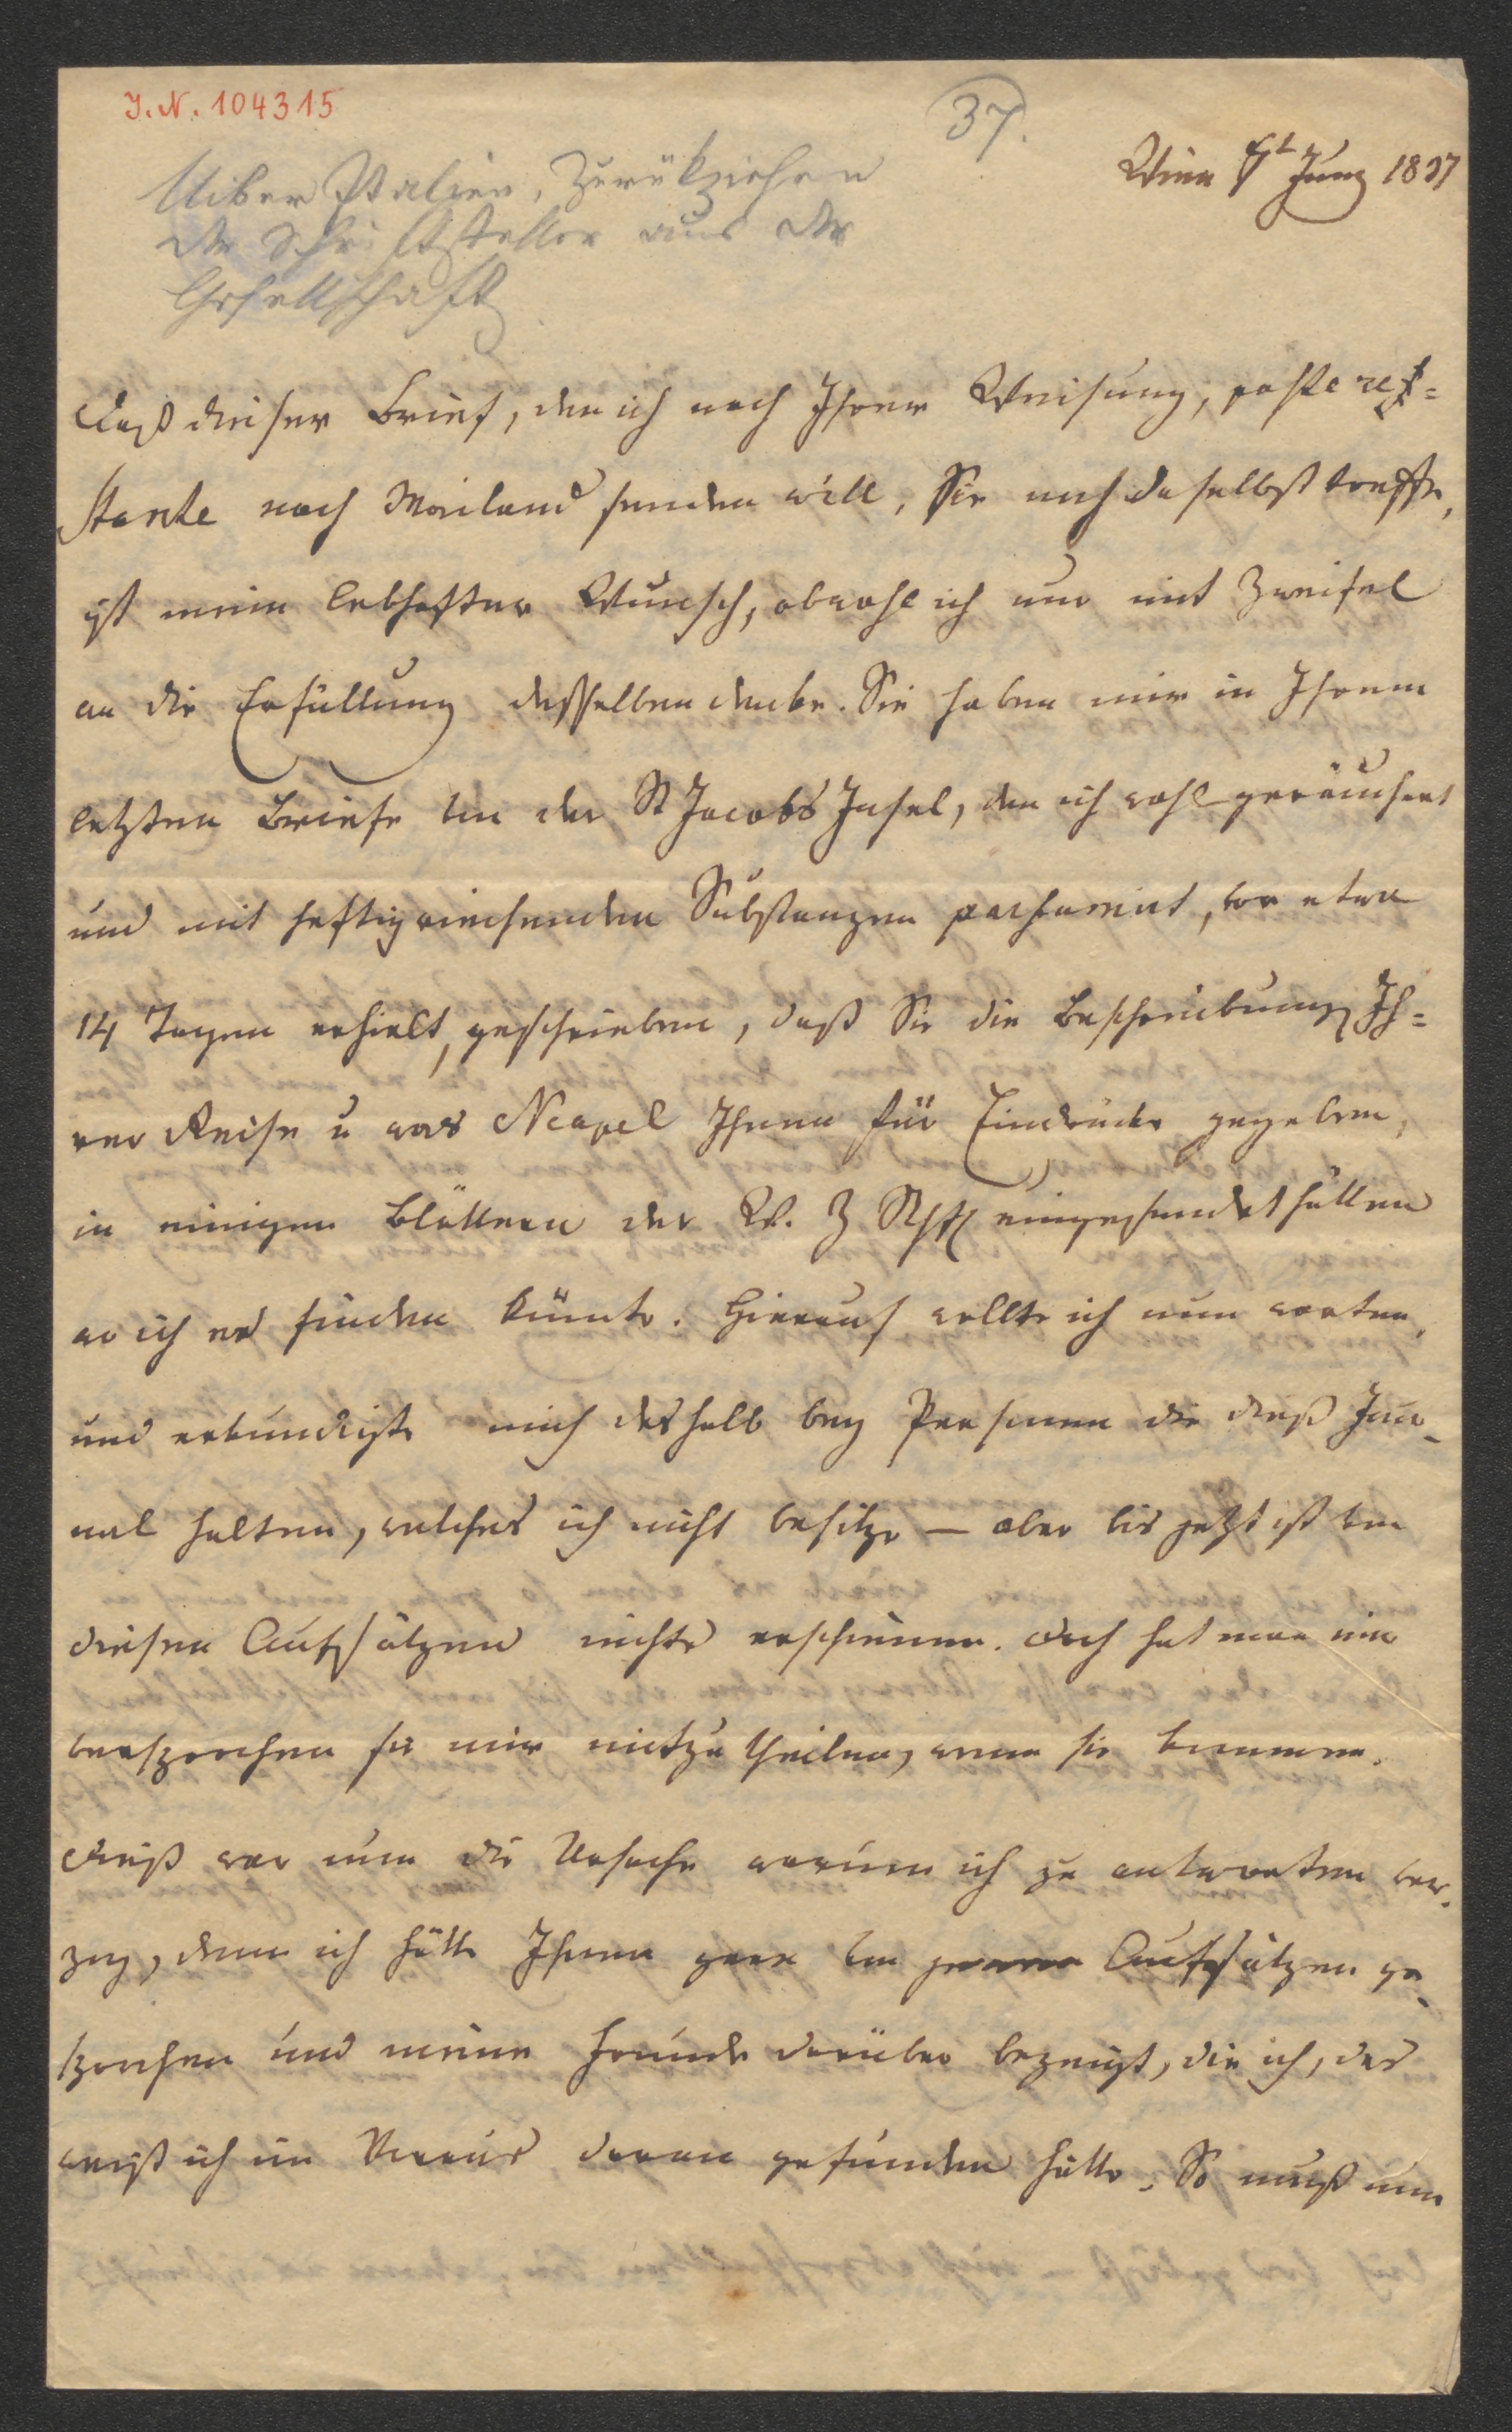 J. N. 104315
37.
Wien 7t Juny 1837
Uiber Italien, Zurükziehen
der Schriftsteller aus der
Gesellschaft
Daß dieser Brief, den ich nach Ihrer Weisung, poste res=
stante nach Mailand senden will, Sie noch daselbst treffe,
ist mein lebhafter Wunsch, obwohl ich nur mit Zweifel
an die Erfüllung desselben denke. Sie haben mir in Ihrem
letzten Briefe von der St Jacobs Insel, den ich wohl geräuchert
und mit heftig riechenden Substanzen parfumirt, vor etwa
14 Tagen erhielt, geschrieben, daß Sie die Beschreibung Ih=
rer Reise u was Neapel Ihnen für Eindrücke gegeben,
in einigen Blättern der W. Z eingesendet hätten
wo ich es finden könnte. Hierauf wollte ich nun warten,
und erkundigte mich deshalb bey Personen die dieß Jour-
nal halten, welches ich nicht besitze – aber bis jetzt ist von
diesen Aufsätzen nichts erschienen. Doch hat man mir
versprochen sie mir mitzutheilen, wenn sie kommen.
Dieß war nun die Ursache warum ich zu antworten ver-
zog, denn ich hätte Ihnen gern von Aufsätzen ge-
sprochen und meine Freude darüber bezeugt, die ich, das
weiß ich im Voraus daran gefunden hätte. So muß nun